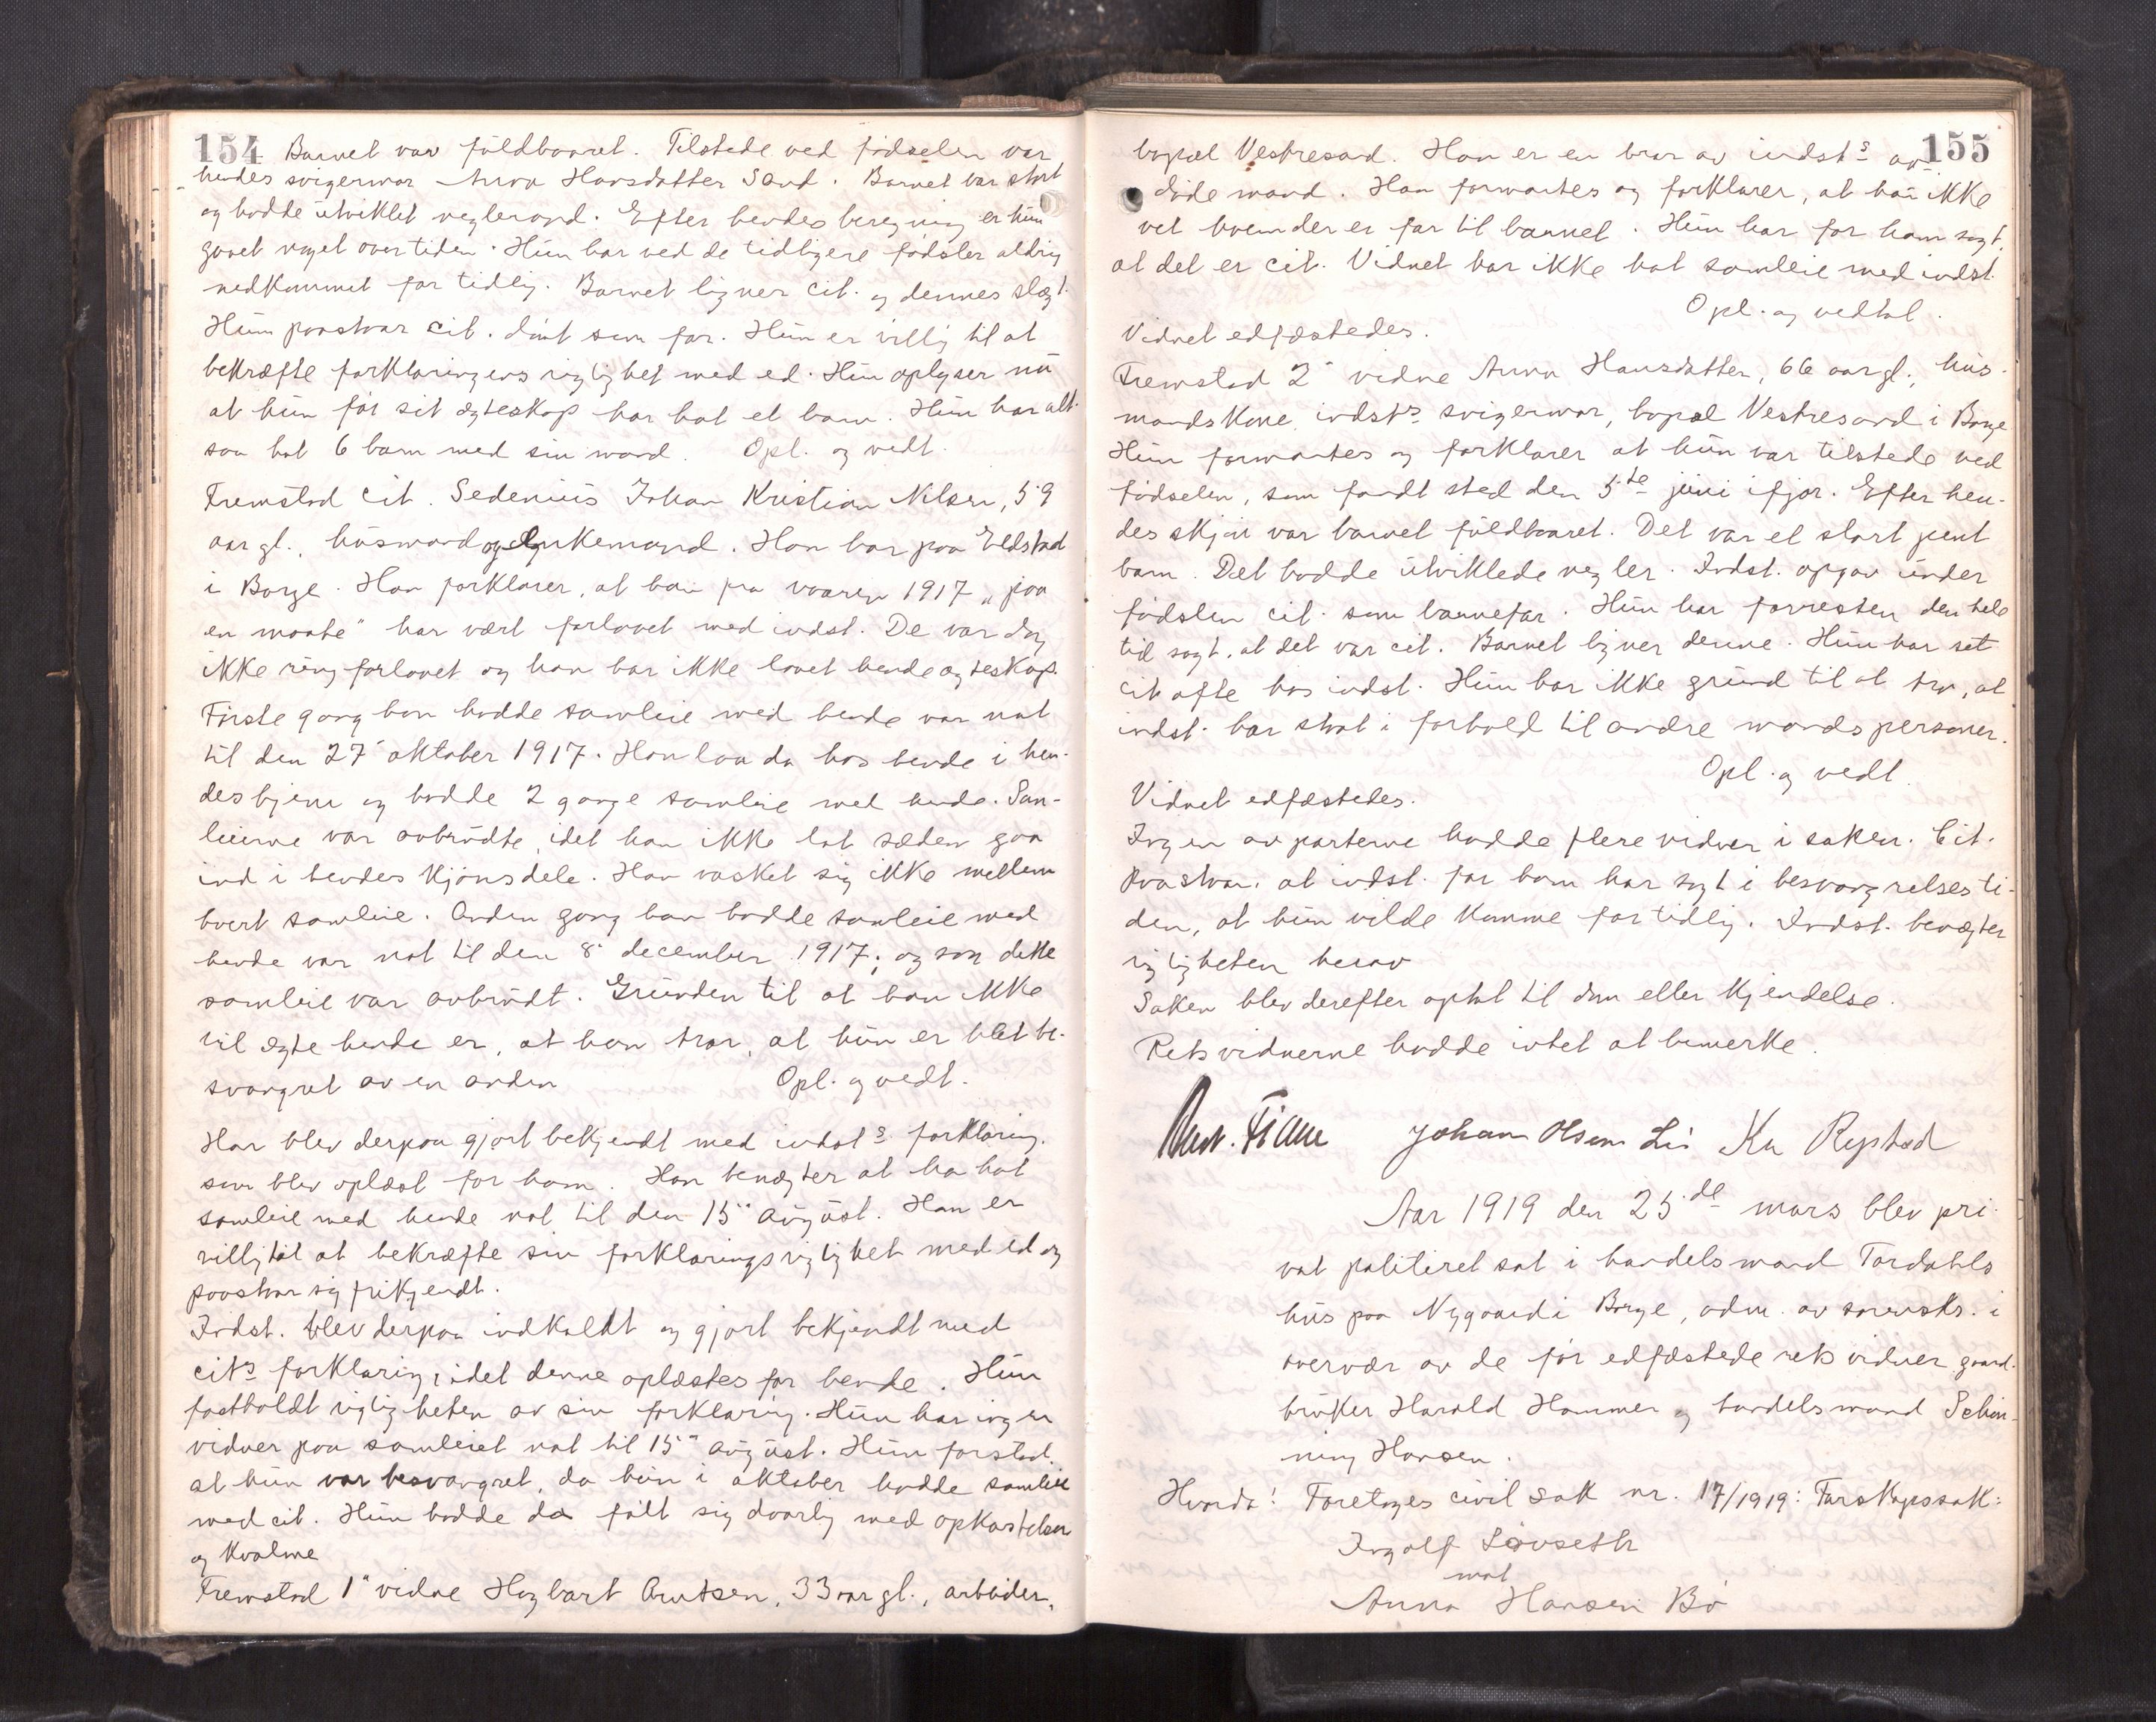 154 Barnet var fuldbaaret. Tilstede ved fødselen var
hendes svigermor Anna Hansdatter Sand. Barnet var stort
og hadde utviklet neglerand. Efter hendes beregning er hun
gaaet noget over tiden. Hun har ved de tidligere fødsler aldrig
nedkommet for tidlig. Barnet ligner cit. og dennes slegt.
Hun paastaar cit. dømt som far. Hun er villig til at
bekræfte forklaringens rigtighet med ed. Hun oplyser nu
at hun før sit egteskap har hat et barn. Hun har alt-
saa hat 6 barn med sin mand. Opl. og vedt.
Fremstod cit. Sedenius Johan Kristian Nilsen, 59
aar gl., husmand og enkemand. Han bor paa Eldstad
i Borge. Han forklarer, at han fra vaaren 1917 „paa
en maate" har vært forlovet med indst. De var dog
ikke ringforlovet og han har ikke lovet hende egteskap.
Første gang han hadde samleie med hende var nat
til den 27' oktober 1917. Han laa da hos hende i hen-
des hjem og hadde 2 gange samleie med hende. Sam-
leierne var avbrudte, idet han ikke lot sæden gaa
ind i hendes kjønsdele. Han vasket sig ikke mellem
hvert samleie. Anden gang han hadde samleie med
hende var nat til den 8' december 1917; og saa dette
samleie var avbrudt. Grunden til at han ikke
vil egte hende er, at han tror, at hun er blet be-
svangret av en anden Opl. og vedt.
Han blev derpaa gjort bekjendt med indst s forklaring.
som blev oplæst for ham. Han benegter at ha hat
samleie med hende nat til den 15" august. Han er
villig til at bekræfte sin forklarings rigtighet med ed og
paastaar sig frikjendt.
Indst. blev derpaa indkaldt og gjort bekjendt med
cits forklaring, idet denne oplæstes for hende. Hun
fastholdt rigtigheten av sin forklaring. Hun har ingen
vidner paa samleiet nat til 15" august. Hun forstod
at hun var besvangret, da hun i oktober hadde samleie
med cit. Hun hadde da følt sig daarlig med opkastelser
og kvalme
Fremstod 1" vidne Hagbart Arntsen, 33 aar gl., arbeider,
155
bopæl Vestresand. Han er en bror av indst s av-
døde mand. Han formantes og forklarer, at han ikke
vet hvem der er far til barnet. Hun har for ham sagt,
at det er cit. Vidnet har ikke hat samleie med indst.
Opl. og vedtat.
Vidnet edfæstedes.
Fremstod 2" vidne Anna Hansdatter, 66 aar gl., hus-
mandskone, indst s svigermor, bopæl Vestresand i Borge
Hun formantes og forklarer at hun var tilstede ved
fødselen, som fandt sted den 5te juni ifjor. Efter hen-
des skjøn var barnet fuldbaaret. Det var et stort pent
barn. Det hadde utviklede negler. Indst. opgav under
fødslen cit. som barnefar. Hun har forresten den hele
tid sagt, at det var cit. Barnet ligner denne. Hun har set
cit. ofte hos indst. Hun har ikke grund til at tro, at
indst. har staat i forhold til andre mandspersoner.
Opl. og vedt.
Vidnet edfæstedes.
Ingen av parterne hadde flere vidner i saken. Cit.
paastaar, at indst. for ham har sagt i besvangrelsesti-
den, at hun vilde komme for tidlig. Indst. benegter
rigtigheten herav
Saken blev derefter optat til dom eller kjendelse.
Retsvidnerne hadde intet at bemerke.
Johan Olsen Li Kr Rystad
Aar 1919 den 25de mars blev pri-
vat politiret sat i handelsmand Tordahls
hus paa Nygaard i Borge, adm. av sorenskr. i
overvær av de før edfæstede retsvidner gaard-
bruker Harald Hammer og handelsmand Schøn-
ning Hansen.
Hvorda: Foretages civil sak nr. 17/1919: Farskapssak:
Ingolf Løvseth
mot
Anna Hansen Bø